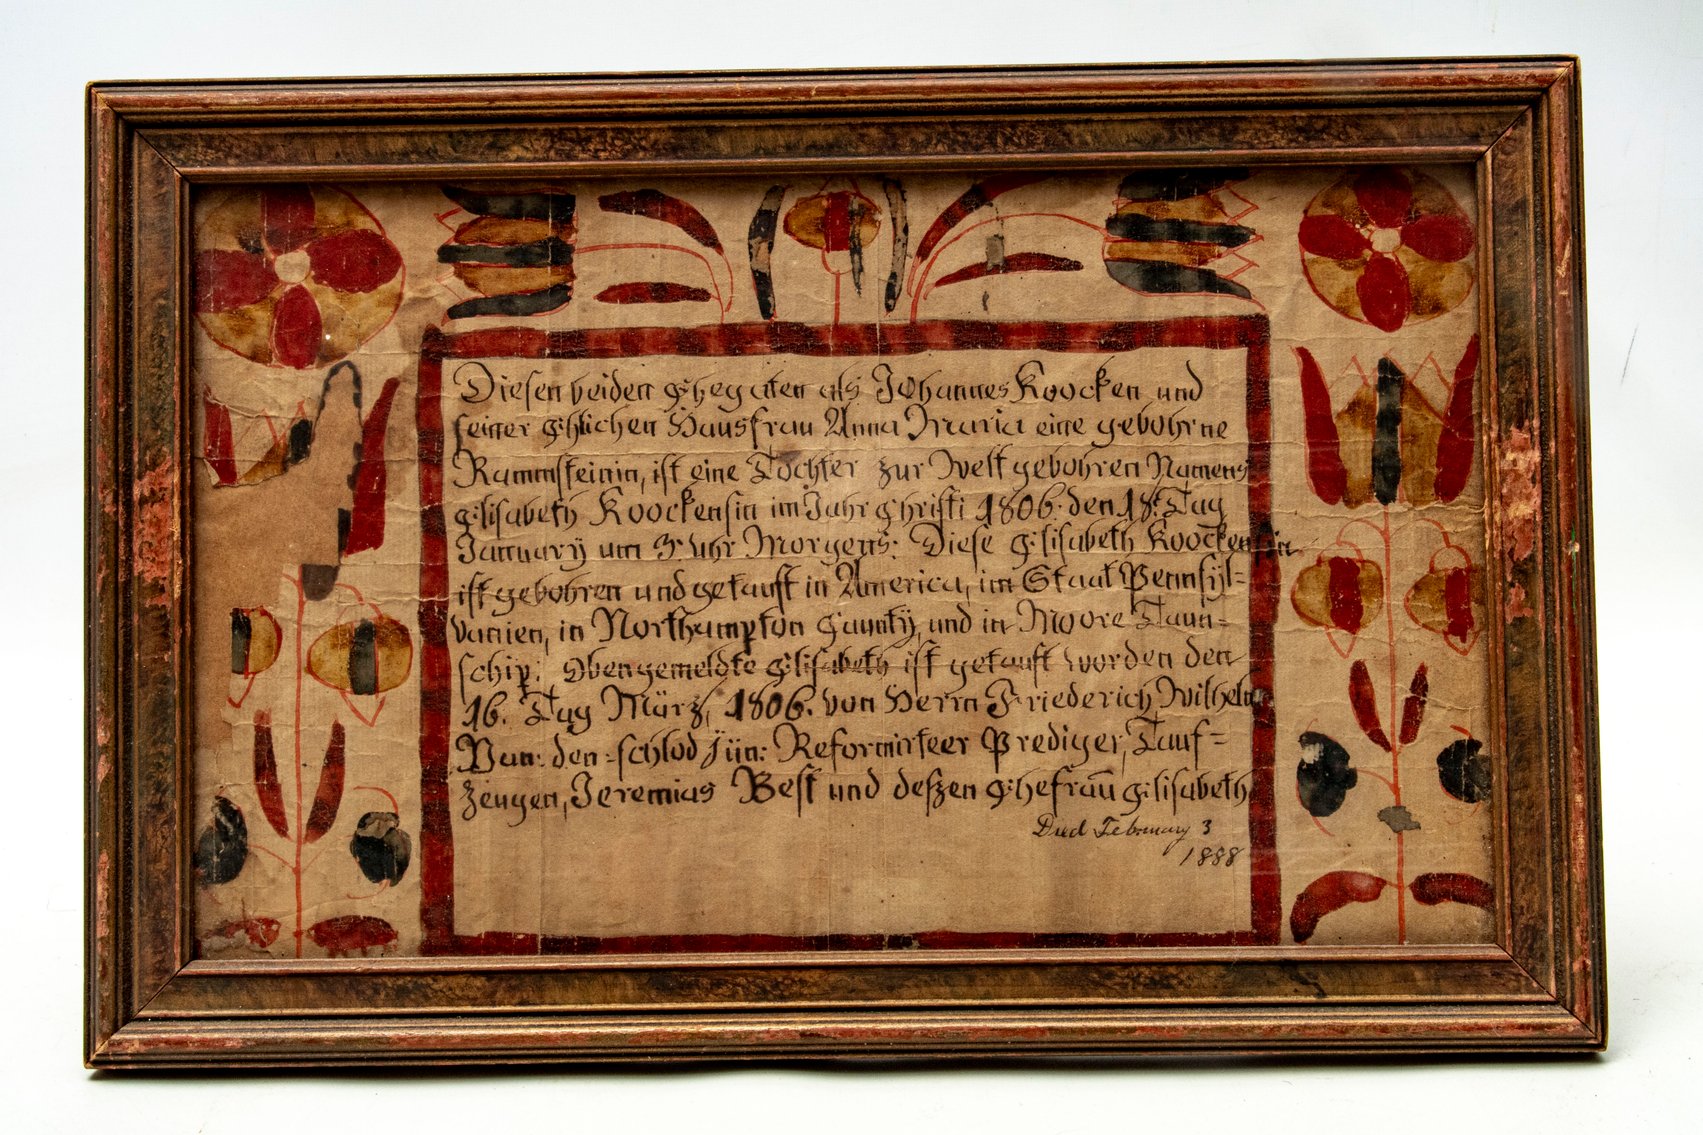 Diesen beiden Ehegaten als Johannes Koocken und
seiner Ehlichen Hausfrau Anna Maria eine gebohrne
Rammsteinin, ist eine Tochter zur Welt gebohren Namens
Elisabeth Koockensin im Jahr Christi 1806. den 18. Tag
January um 3. Uhr Morgens: Diese Elisabeth Koockensin
ist gebohren und getauft in America, im Staat Pennsyl=
vanien, in Northampton Caunty, und in Moore Taun=
schip: Obengemeldte Elisabeth ist getauft worden den
16. Tag März, 1806. von Herrn Friederich Wilhelm
Van: den =schlod Jün: Reformirteer Prediger, Tauf=
zeugen, Jeremias Best und deßzen Ehefrau Elisabeth
Died February 3
1888